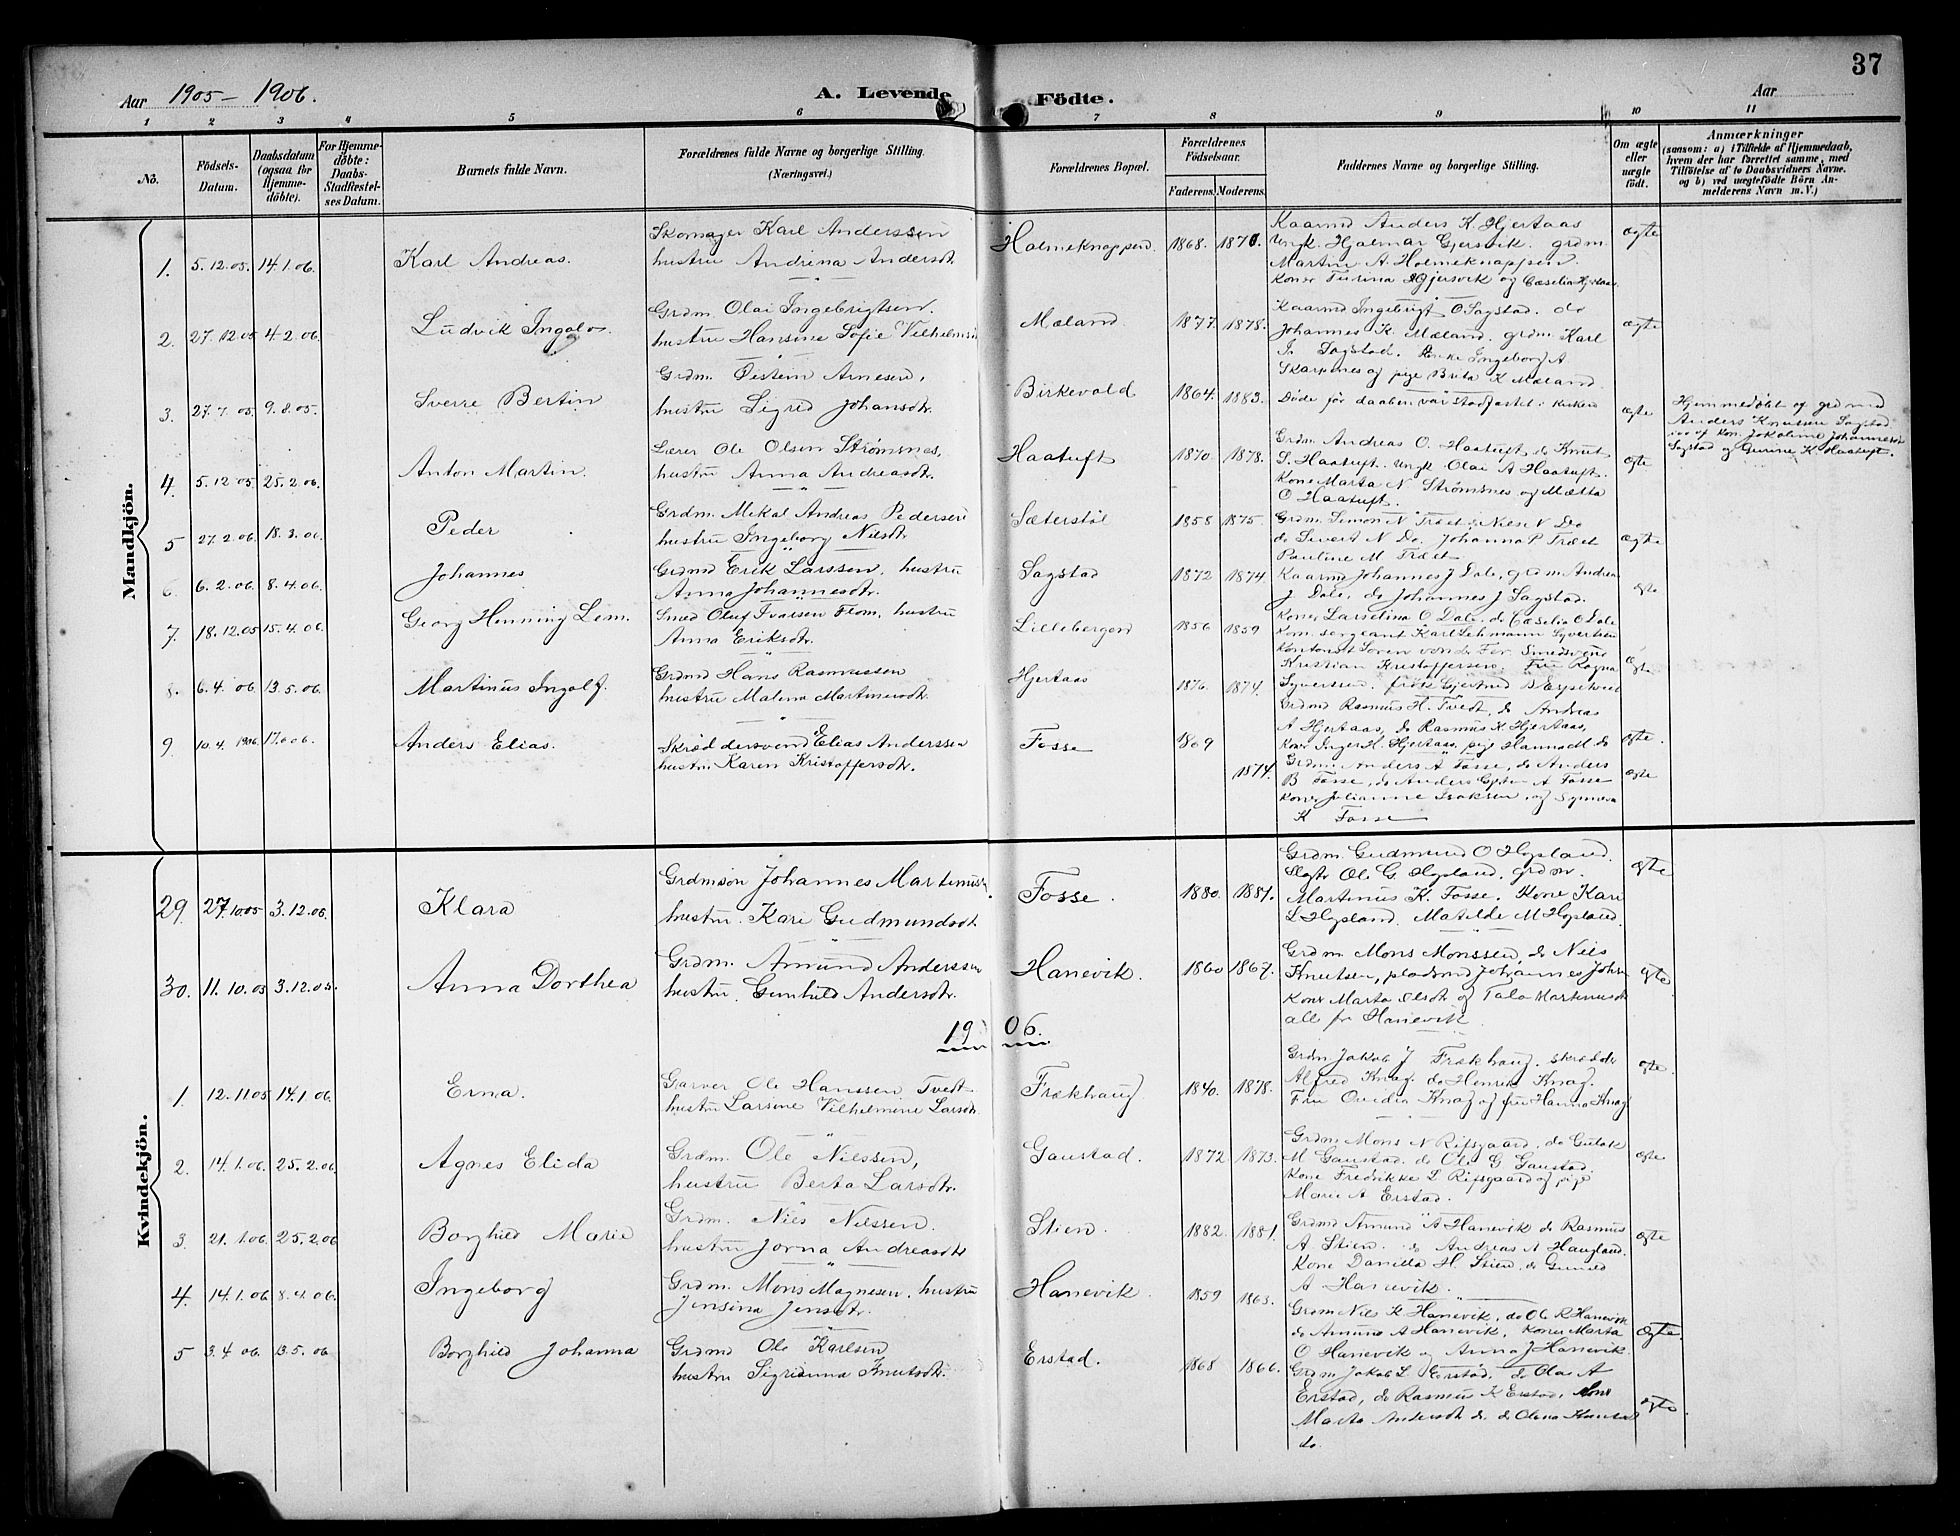 37
Aar 1905 – 1906. A. Levende Födte. Aar
1 2 3 4 5 6 7 8 9 10 11
No.
Födsels-Datum.
Daabsdatum (ogsaa for Hjemme-døbte).
For Hjemme-døbte: Daabs-Stadfæstel-ses Datum.
Barnets fulde Navn.
Forældrenes fulde Navne og borgerlige Stilling. (Næringsvei.)
Forældrenes Bopæl.
Forældrenes Födselsaar.
Faderens. Moderens.
Faddernes Navne og borgerlige Stilling.
Om ægte eller uægte født.
Anmærkninger
(saasom: a) i Tilfælde af Hjemmedaab,
hvem der har forrettet samme, med
Tilföielse af to Daabsvidners Navne.
og b) ved uægtefödte Börn An-
melderens Navn m. V.)
Mandkjön.
1. 5.12.05. 14.1.06. Karl Andreas.
Skomager Karl Anderssen
hustru Andrina Andersdtr.
Holmeknappen 1868. 1870.
Kaarmd Anders K. Hjertaas
Ungk. Hjalmar Gjersvik. grdm.
Martin A. Holmeknappen
Koner Turina Gjersvik og Cæselia Hjertaas
ægte
2. 27.12.05 4.2.06. Ludvik Ingolv.
Grdm. Olai Ingebrigtsen.
hustru Hansine Sofie Vilhelmsdtr
Mæland. 1877. 1878.
Kaarmd Ingebrigt O Sagstad. do
Johannes K. Mæland. grdm. Karl
I. Sagstad. Enke Ingeborg A
Skarpenes og pige Brita K Mæland.
ægte
3. 27.7.05 9.8.05. Sverre Bertin
Grdm. Øistein Arnesen,
hustru Sigrid Johansdtr.
Birkevold 1864. 1883.
Døde før daaben var stadfæstet i kirken
ægte
Hjemmedøbt af grdmd
Anders Knutsen Sagstad
Jakobine Johannesdtr
Sagstad og Gurine K Haatuft.
4. 5.12.05 25.2.06. Anton Martin.
Lærer Ole Olsen Strømsnes,
hustru Anna Andreasdtr.
Haatuft 1870 1878.
Grdm. Andreas O. Haatuft, do Knut
S. Haatuft. Ungk Olai A Haatuft.
Kone Marta N Strømsnes og Mætta
O Haatuft.
ægte
5 27.2.06. 18.3.06. Peder
Grdm. Mekal Andreas Pedersen
hustru Ingeborg Nilsdtr.
Sæterstøl 1858 1875.
Grdm. Simon N Træet, Nils N Do
do Sivert N Do. Johanna P Træet
Pauline M. Træet
ægte
6 6.2.06. 8.4.06. Johannes
Grdmd Erik Larssen, hustru
Anna Johannesdtr.
Sagstad 1872 1874
Kaarmd Johannes J Dale, grdm. Andrea
J Dale, do Johannes J Sagstad.
Koner Larselina O Dale, do Cæselia O Dale
ægte
7. 18.12.05 15.4.06. Georg Henning Lem.
Smed Oluf Ivarsen Flom, hustru
Anna Eriksdtr.
Lillebergen 1856 1859
Kom. sergeant Karl Lehmann Syvertsen
Kontorist Søren von der Fer. Smedsvend
Kristian Kristoffersen. Fru Ragna
Syverssen. frøk. Gjertrud B Espeland
ægte
8. 6.4.06 13.5.06. Martinus Ingolf.
Grdmd Hans Rasmussen
hustru Malena Martinusdtr.
Hjertaas 1876. 1874.
Grdmd Rasmus H. Tvedt, do Andreas
A Hjertaas, do Rasmus K. Hjertaas,
Kone Inger H. Hjertaas, pige Hanna M. do
ægte.
9. 10.4.1906. 17.6.06. Anders Elias.
Skræddersvend Elias Anderssen
hustru Karen Kristoffersdtr.
Fosse 1869 1874.
Grdm. Anders A Fosse, do Anders
B Fosse, do Anders A Fosse
Koner Julianne Isaksen og Synneva
K Fosse
ægte
Kvindekjön.
29 27.10.05 3.12.06. Klara
Grdmsøn Johannes Martinuss.
hustru. Kari Gudmundsdtr
Fosse. 1880. 1881.
Grdm. Gudmund O Hopland.
Ole G. Hopland, grdm.
Martinus K. Fosse. Kone Kari
L Hopland. Matilde M Hopland.
ægte
30. 11.10.05 3.12.05. Anna Dorthea
Grdm. Amund Anderssen
hustru. Gunhild Andersdtr.
Hanevik. 1860 1867.
Grdm Mons Monssen, do Nils
Knutsen, pladsmd Johannes Johns.
Kone Marta Olsdtr og Tala Martinusdtr
all fr Hanevik
ægte.
1906.
1. 12.11.05 14.1.06. Erna.
Garver Ole Hanssen Tvedt
hustru Larsine Vilhelmine Larsdtr.
Frækhaug 1840. 1878.
Grdm Jakob J Frækhaug. skrædder
Alfred Knag. do Henrik Knag.
Fru Ovidia Knag og fru Hanna Knag
ægte.
2. 14.1.06. 25.2.06. Agnes Elida
Grdm. Ole Nilssen,
hustru Berta Larsdtr.
Gaustad. 1872 1873.
Grdm. Mons N Rifsgaard. do Gutak
M Gaustad. do Ole G Gaustad.
Kone Fredrikke L Rifsgaard og pige
Marie A Erstad.
ægte.
3. 21.1.06. 25.2.06 Borghild Marie
Grdm. Nils Nilssen.
hustru Jorna Andreasdtr
Stien. 1882. 1881.
Grdmd Amund A Hanevik do Rasmus
A Stien. do Andreas A Haugland.
Kone Danilla H. Stien, do Gunild
A Hanevik.
ægte
4. 14.1.06. 8.4.06. Ingeborg
Grdm. Mons Magnesen, hustru
Jensina Jensdtr.
Hanevik. 1859 1863.
Grdm Nils K Hanevik, do Ole R Hanevik
do Amund A Hanevik, koner Marta
O Hanevik og Anna J Hanevik.
ægte.
5 3.4.06. 13.5.06 Borghild Johanna
Grdmd Ole Karlsen
hustru Sigridunna Knutsdtr.
Erstad. 1868 1866.
Grdm. Jakob L Erstad, do Olai A
Erstad, do Rasmus K Erstad, kone
Marta Andersdtr do do Olena Knutsd
do.
ægte